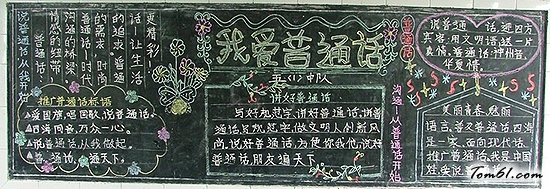 我爱普通话
五(1)中队
更精彩!
话—让生活
的追求 普通
的需求 时尚
普通话,时代
沟通的桥梁
情感的纽带
普通话
说普通话从我开始
推广普通话标语
爱国旗,唱国歌,说普通话。
四海同音,万众一心。
说普通话,从我做起。
普通话,通天下。
讲好普通话
写好规范字,讲好普通话,讲普
通话,写规范字,做文明人,创新风
尚,说好普通话,为使你我他,说好
普通话,朋友遍天下。
沟通,从普通话开始
说普通话,迎四方
宾客;用文明语,送一片
真情。普通话,神州音,
华夏情。
美丽青春,魅丽
语言,普及普通话,四海
是一家,面向现代话,
推广普通话,我是中国
娃,爱说
Tom61.com